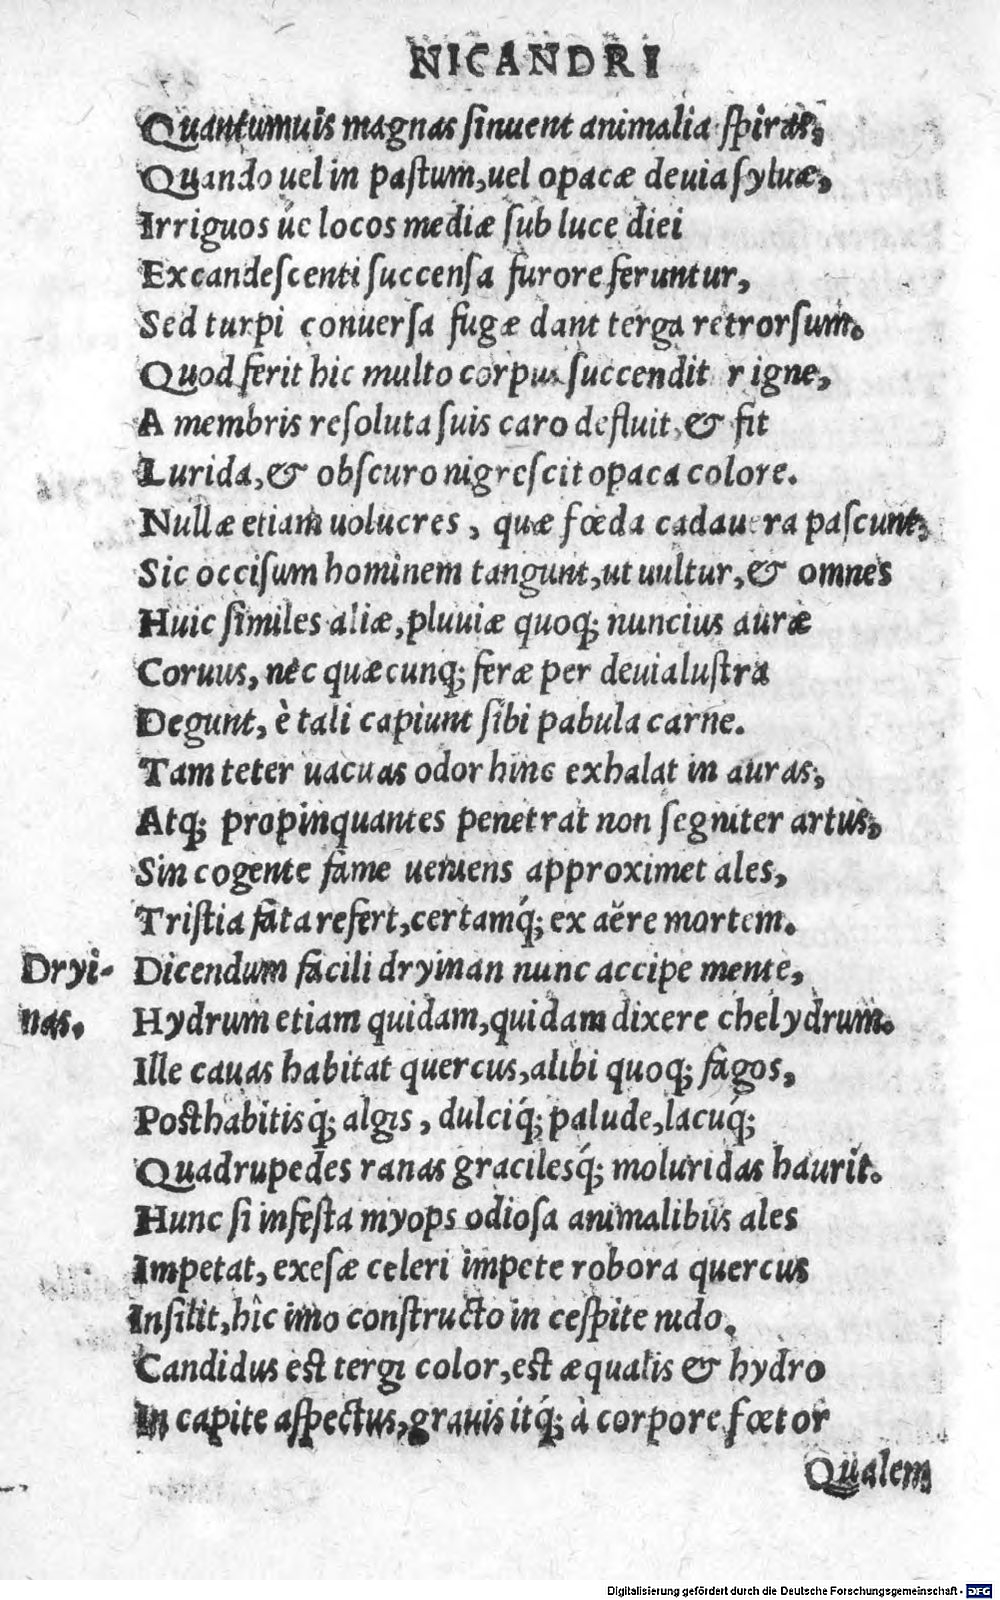 NICANDRI
Quantumuis magnas ſinuent animalia ſpiras,
Quando uel in paſtum, uel opacæ deuia ſyluæ,
Irriguos úe locos mediæ ſub luce diei
Excandeſcenti ſuccenſa furore feruntur,
Sed turpi conuerſa fugæ dant terga retrorſum.
Quod ferit hic multo corpus ſuccendit r igne,
A membris reſoluta ſuis caro defluit, & fit
Lurida, & obſcuro nigreſcit opaca colore.
Nullæ etiam uolucres, quæ fœda cadauera paſcunt,
Sic occiſum hominem tangunt, ut uultur, & omnes
Huic ſimiles aliæ, pluuiæ quoq; nuncius auræ
Coruus, nec quæcunq; feræ per deuia luſtra
Degunt, è tali capiunt ſibi pabula carne.
Tam teter uacuas odor hinc exhalat in auras,
Atq; propinquantes penetrat non ſegniter artus,
Sin cogente fame ueniens approximet ales,
Triſtia fata refert, certamq́; ex aëre mortem.
Dryi- Dicendum facili dryinan nunc accipe mente,
nas. Hydrum etiam quidam, quidam dixere chelydrum.
Ille cauas habitat quercus, alibi quoq; fagos,
Poſthabitisq́; algis, dulciq́; palude, lacuq́;
Quadrupedes ranas gracilesq́; moluridas haurit.
Hunc ſi infeſta myops odioſa animalibus ales
Impetat, exeſæ celeri impete robora quercus
Inſilit, hîc imo conſtructo in ceſpite nido.
Candidus eſt tergi color, eſt æqualis & hydro
In capite aſpectus, grauis itq́; à corpore fœtor
Qualem
Digitalisierung gefördert durch die Deutsche Forschungsgemeinschaft - DFG